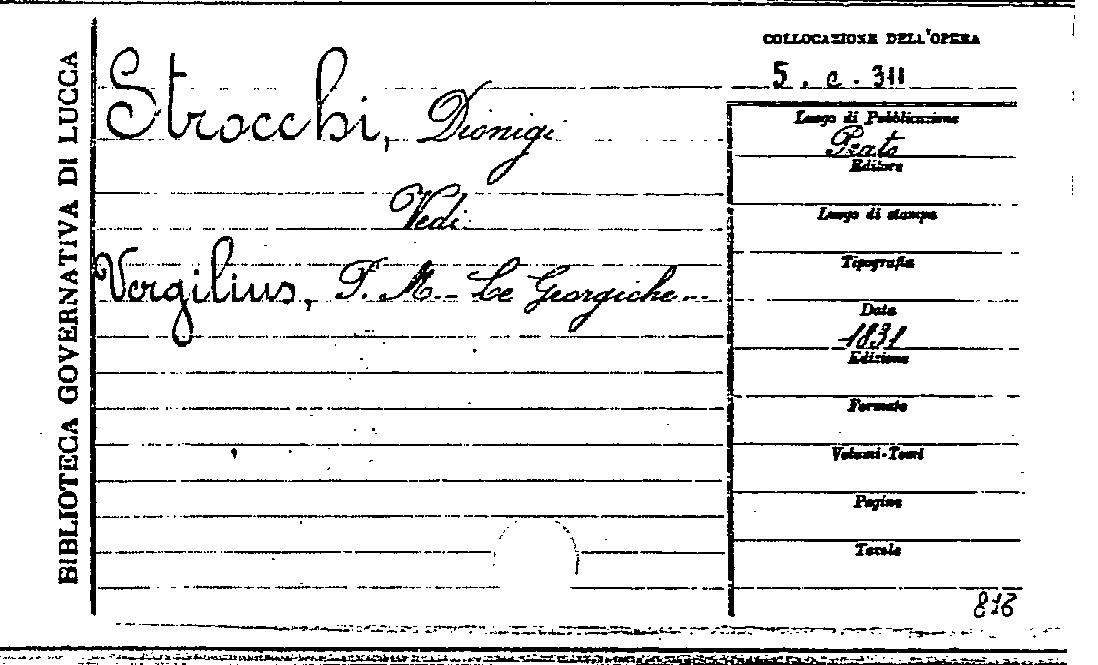 BIBLIOTECA GOVERNATIVA DI LUCCA
Strocchi, Dionigi
Vedi
Vergilius, P. M. - Le Georgiche...
COLLOCAZIONE DELL'OPERA
5. c. 311
Luogo di Pubblicazione
Prato
Editore
Luogo di stampa
Tipografia
Data
1831
Edizione
Formato
Volumi-Tomi
Pagine
Tavole
816